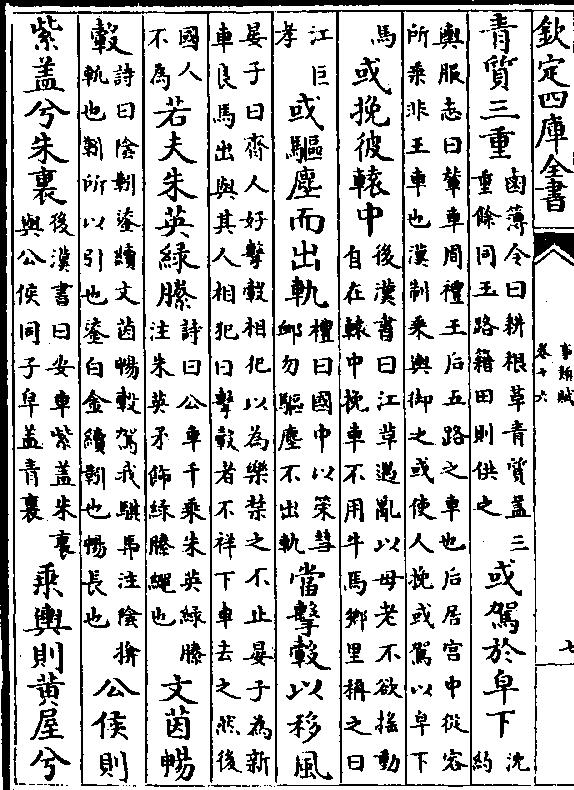 欽定四庫全書
事類賦
卷十六
七
青質三重
鹵薄令曰耕根草青質蓋三
重餘同玉路籍田則供之
或駕於皁下
沈
約
輿服志曰輦車周禮王后五路之車也后居宮中從容
所乘非王車也漢制乘輿御之或使人挽或駕以皁下
馬
或挽彼轅中
後漢書曰江草遇亂以母老不欲搖動
自在轅中挽車不用牛馬鄉里稱之曰
江巨
孝
或驅塵而出軌
禮曰國中以策彗
䘏勿驅塵不出軌
當擊轂以移風
晏子曰齊人好擊轂相犯以為樂禁之不止晏子為新
車良馬出與其人相犯曰擊轂者不祥下車去之然後
國人
不為
若夫朱英緑縢
詩曰公車千乘朱英緑縢
注朱英矛飾緑縢繩也
文茵暢
轂
詩曰陰靷鋈續文茵暢轂駕我騏馬注陰揜
軌也靷所以引也鋈白金續靷也暢長也
公侯則
紫蓋兮朱裏
後漢書曰安車紫蓋朱裏
與公侯同子皁蓋青裏
乘輿則黄屋兮